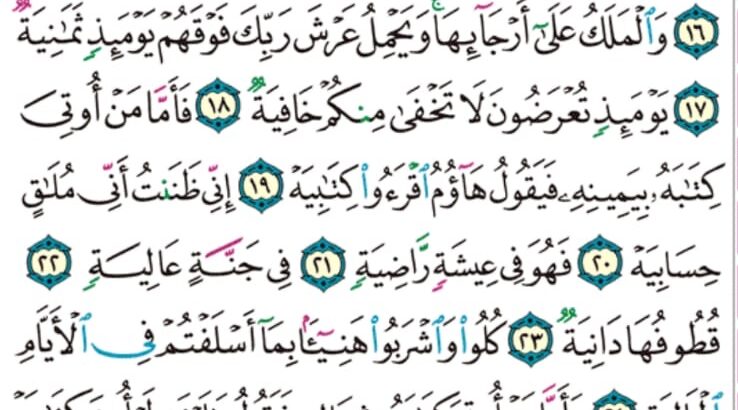 ﴿١٦﴾ وَٱلْمَلَكُ عَلَىٰٓ أَرْجَآئِهَا ۚ وَيَحْمِلُ عَرْشَ رَبِّكَ فَوْقَهُمْ يَوْمَئِذٍ ثَمَـٰنِيَةٌ
﴿١٧﴾ يَوْمَئِذٍ تُعْرَضُونَ لَا تَخْفَىٰ مِنكُمْ خَافِيَةٌ ﴿١٨﴾ فَأَمَّا مَنْ أُوتِىَ
كِتَـٰبَهُۥ بِيَمِينِهِۦ فَيَقُولُ هَآؤُمُ ٱقْرَءُوا۟ كِتَـٰبِيَهْ ﴿١٩﴾ إِنِّى ظَنَنتُ أَنِّى مُلَـٰقٍ
حِسَابِيَهْ ﴿٢٠﴾ فَهُوَ فِى عِيشَةٍ رَّاضِيَةٍ ﴿٢١﴾ فِى جَنَّةٍ عَالِيَةٍ ﴿٢٢﴾
قُطُوفُهَا دَانِيَةٌ ﴿٢٣﴾ كُلُوا۟ وَٱشْرَبُوا۟ هَنِيٓـًٔۢا بِمَآ أَسْلَفْتُمْ فِى ٱلْأَيَّامِ